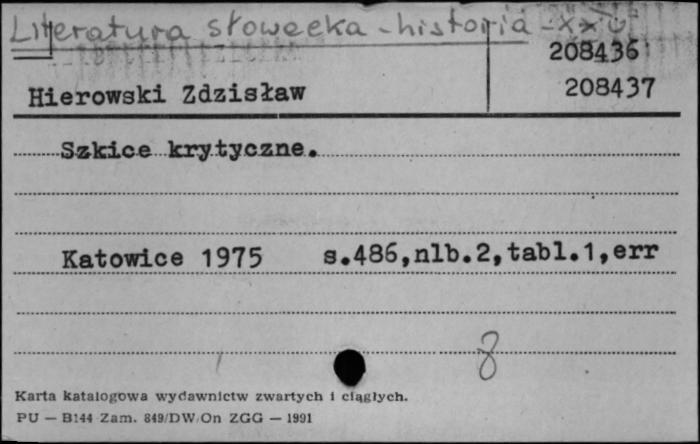 Literatura słowecka - historia - XX w
208436
Hierowski Zdzisław 208437
Szkice krytyczne.
Katowice 1975 s.486,nlb.2,tabl.1,err
8
Karta katalogowa wydawnictw zwartych i ciągłych.
PU — B144 Zam. 849/DW/On ZGG — 1991